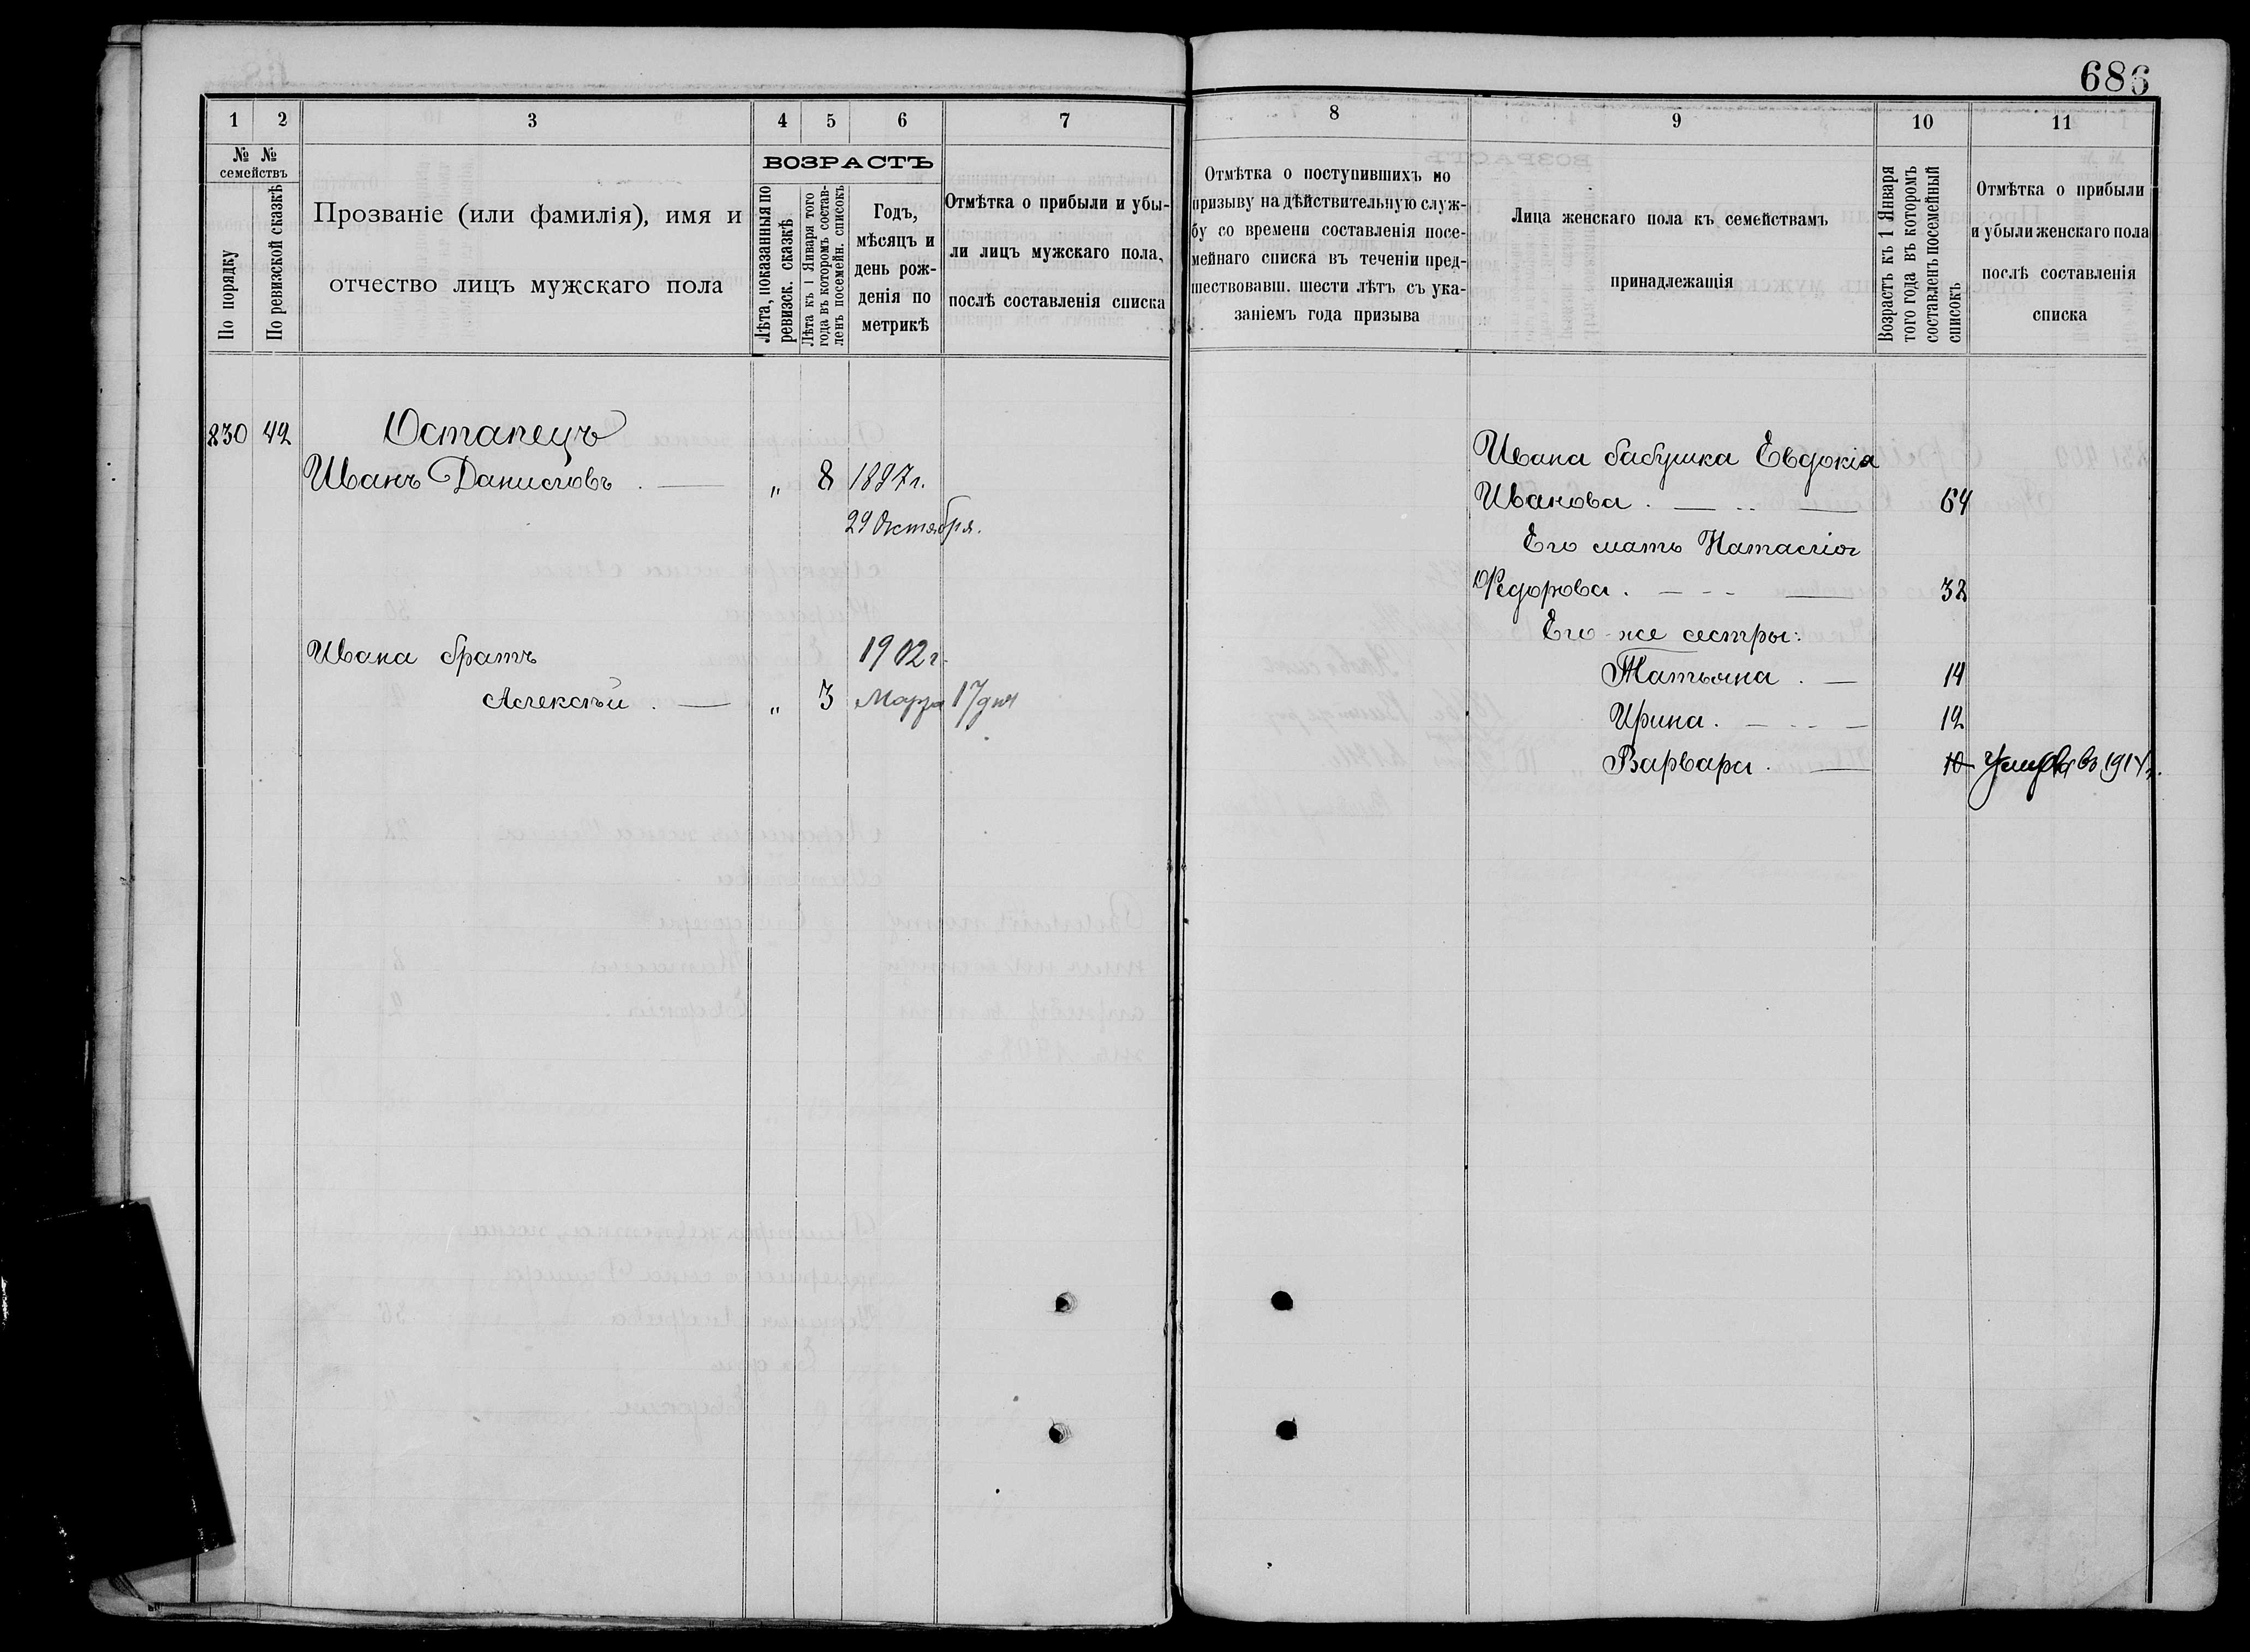 686
1 2 3 4 5 6 7
№ № семействъ
По порядку
По ревизской сказкѣ
Прозваніе (или фамилія), имя и
отчество лицъ мужскаго пола
ВОЗРАСТЪ
Лѣта, показанныя по
ревизск. сказкѣ
Лѣта къ 1 Января того
года въ которомъ состав-
ленъ посемейн. списокъ
Годъ,
мѣсяцъ и
день рож-
денія по
метрикѣ
Отмѣтка о прибыли и убы-
ли лицъ мужскаго пола,
послѣ составленія списка
830 42 Остапецъ
Иванъ Даниловъ . — „ 8 1897 г.
29 Октября.
Ивана братъ 1902 г.
Алексѣй . — „ 3 Марта 17 дня
8 9 10 11
Отмѣтка о поступившихъ по
призыву на дѣйствительную служ-
бу со времени составленія посе-
мейнаго списка въ теченіи пред-
шествовавш. шести лѣтъ съ ука-
заніемъ года призыва
Лица женскаго пола къ семействамъ
принадлежащія
Возрастъ къ 1 Января
того года въ которомъ
составленъ посемейный
списокъ
Отмѣтка о прибыли
и убыли женскаго пола
послѣ составленія
списка
Ивана бабушка Евдокія
Иванова . — 64
Его мать Наталія
Федорова . — 32
Его-же сестры:
Татьяна . — 14
Ирина . — 12
Варвара . — 10 Умерла въ 1914 г.